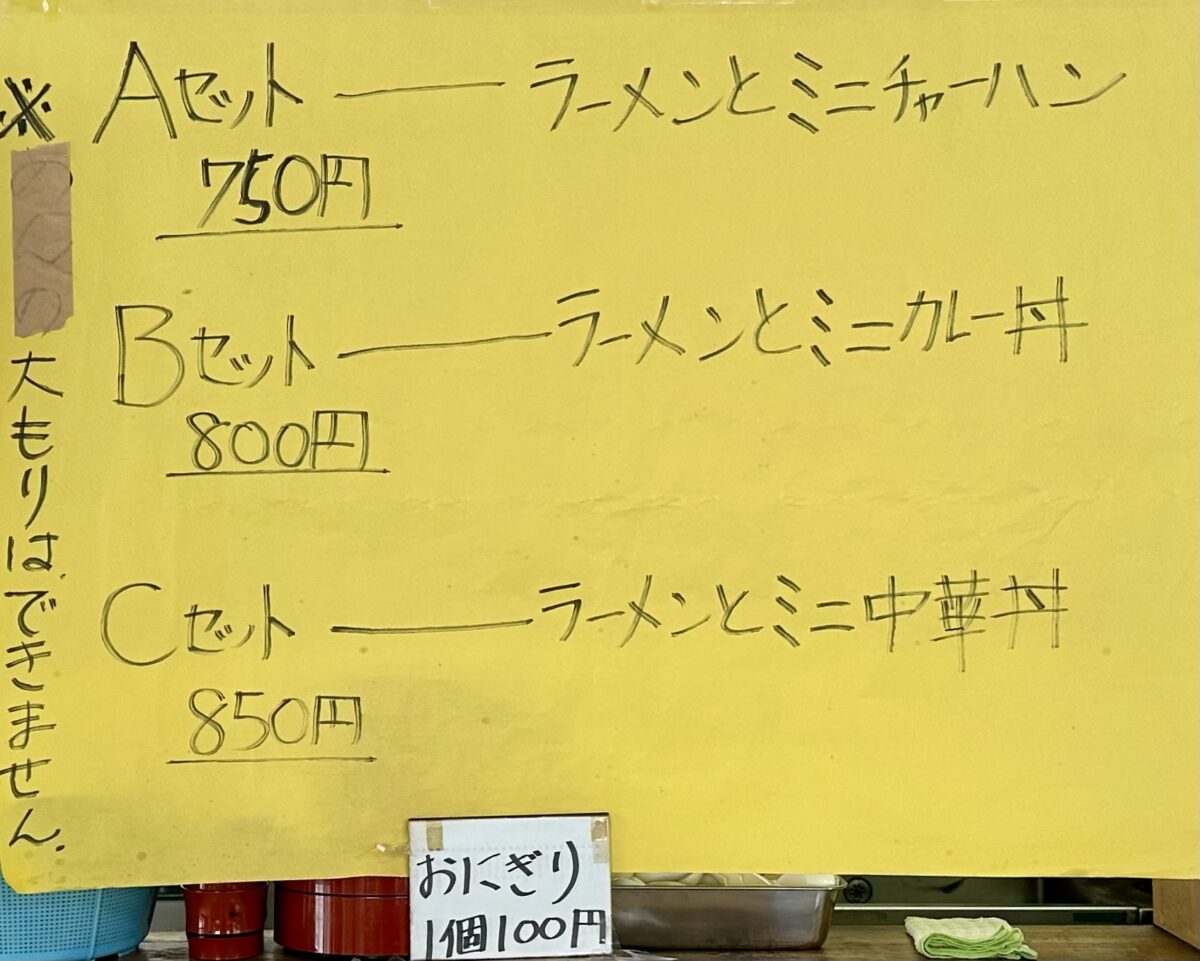 Aセット ―― ラーメンとミニチャーハン
750円
Bセット ―― ラーメンとミニカレー丼
800円
Cセット ―― ラーメンとミニ中華丼
850円
※
大もりはできません.
おにぎり
1個100円